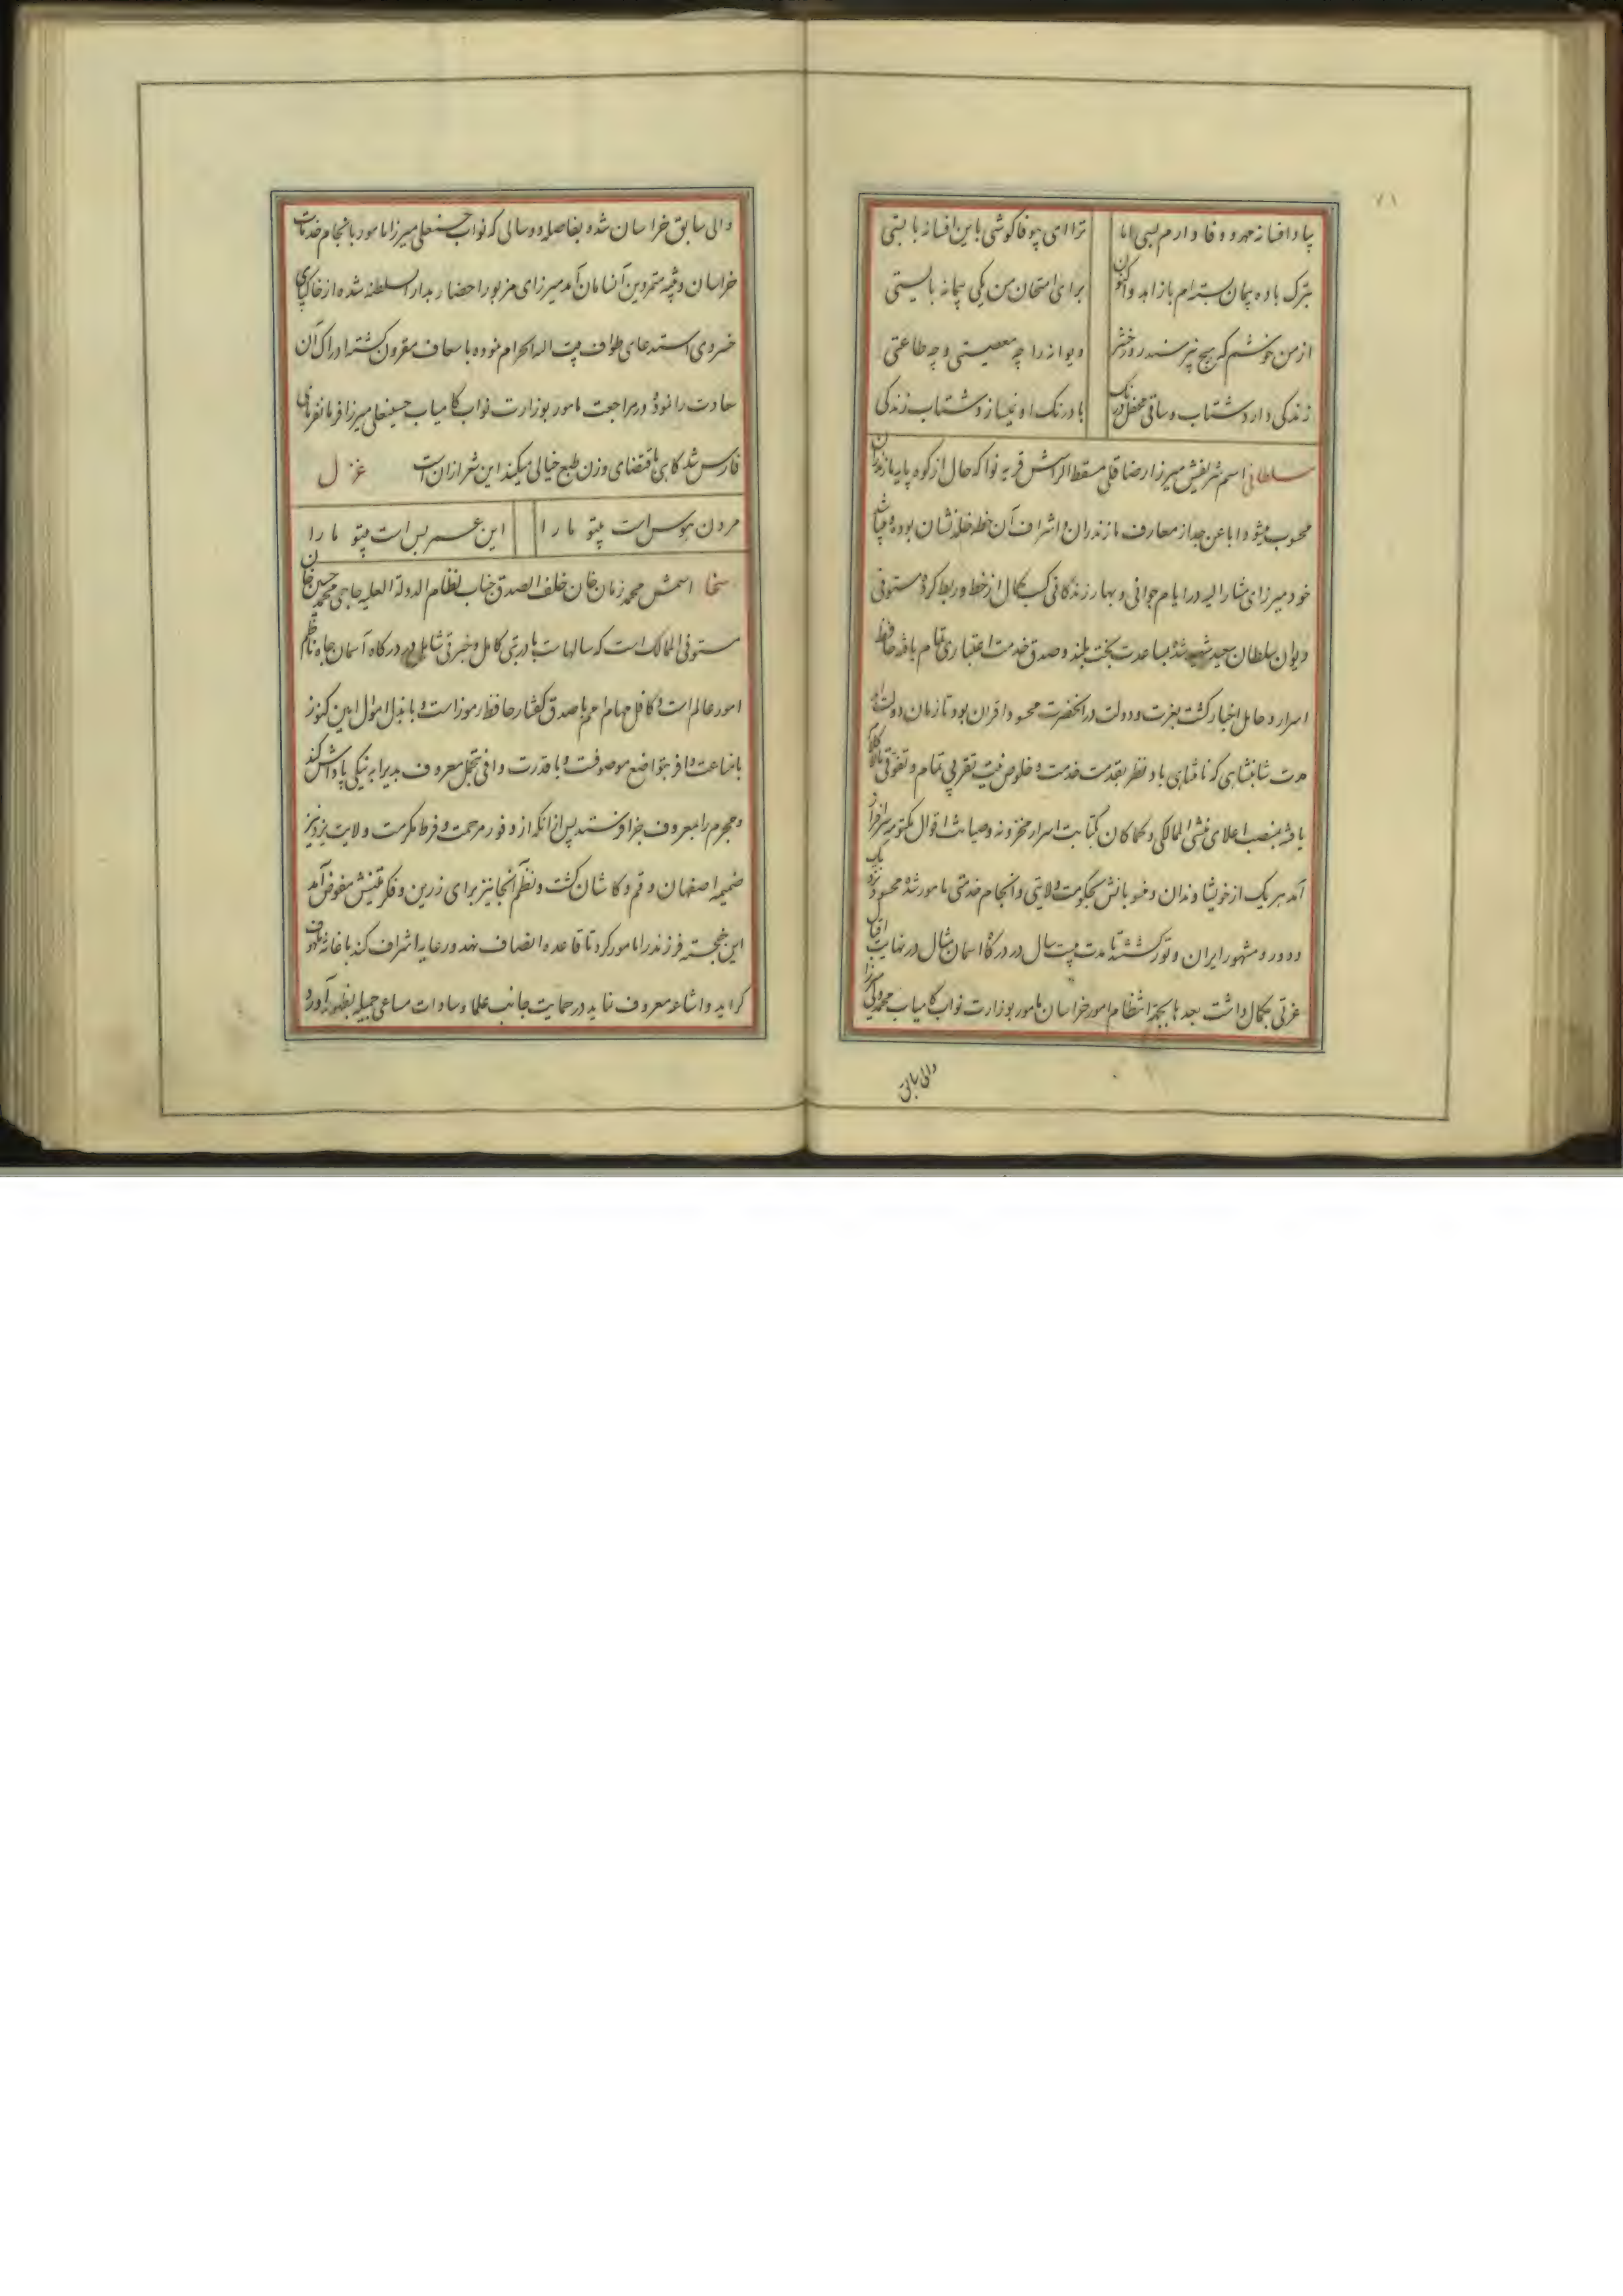 ۷۱
بیاد افسانه مهر و وفا دارم بسی اما
ترا ای بیوفا گوشی باین افسانه بایستی
بترک باده پیمان بسته‌ام با زاهد و اکنون
برای امتحان من یکی پیمانه بایستی
از من خوشم که هیچ نپرسند روز حشر
دیوانه را چه معصیتی و چه طاعتی
زندگی دارد شتاب و ساقی محفل درنگ
با درنگ او نمیسازد شتاب زندگی
سلطانی اسم شریفش میرزا رضا قلی مسقط الراسش قریه نوا که حال از کوه پایه مازندران
محسوب میشود اباعن جد از معارف مازندران و اشراف آن خطه خلد نشان بوده و میباشد
خود میرزای مشار الیه در ایام جوانی و بهار زندگانی کسب کمال از خط و ربط کرده مستوفی
دیوان سلطان سعید شهید شد بمساعدت بخت بلند و صدق خدمت اعتباری تمام یافته حافظ
اسرار و حامل اخبار گشت بعزت و دولت در آنحضرت محسود اقران بود تا زمان دولت
مدت شاهنشاهی که نامتناهی باد نظر بقدمت خدمت و خلوص نیت تقربی تمام و تفوقی مالاکلام
یافته بمنصب اعلای منشی الممالکی و کماکان بکتابت اسرار مخزونه و صیانت اقوال مکتومه سرافراز
آمد هر یک از خویشاوندان و منسوبانش بحکومت ولایتی و انجام خدمتی مامور شده محسود نزدیک
و دور و مشهور ایران و توران گشته تا مدت بیست سال در درگاه آسمان مثال در نهایت اقبال
عزتی بکمال داشت بعدها بجهة انتظام امور خراسان مامور بوزارت نواب کامیاب محمد ولی میرزا
والی سابق
والی سابق خراسان شده بفاصله دو سالی که نواب حسنعلی میرزا مامور بانجام خدمات
خراسان و تنبیه متمردین آنسامان آمد میرزای مزبور احضار بدار السلطنه شده از خاکپای
خسروی استدعای طواف بیت الله الحرام نموده با سعاف مقرون گشته ادراک آن
سعادت را نموده در مراجعت مامور بوزارت نواب کامیاب حسینعلی میرزا فرمانفرمای
فارس شد گاهی باقتضای وزن طبع خیالی میکند این شعر از ان است غزل
مردن هوس است بیتو ما را
این عمر بس است بیتو ما را
سخا اسمش محمد زمان خان خلف الصدق جناب نظام الدولة العلیه حاجی محمد حسین خان
مستوفی الممالک است که سالهاست با دربتی کامل و خبرتی شامل در درگاه آسمان جاه ناظم
امور عالم است و کافل مهام امم با صدق گفتار حافظ رموز است و با بذل اموال امین کنوز
با مناعت وافر بتواضع موصوفست و با قدرت وافی بتحمل معروف بدیرا به نیکی پاداش کند
و مجرم را بمعروف جزا فرستد پس از انکه از وفور مرحمت و فرط مکرمت ولایت یزد نیز
ضمیمه اصفهان و قم و کاشان گشت و نظم آنجا نیز برای زرین و فکر متینش مفوض آمد
این خجسته فرزند را مامور کرد تا قاعده انصاف نهد و رعایه اشراف کند باغاثه ملهوف
گراید و اشاعه معروف نماید در حمایت جانب علما و سادات مساعی جمیله بظهور آورد